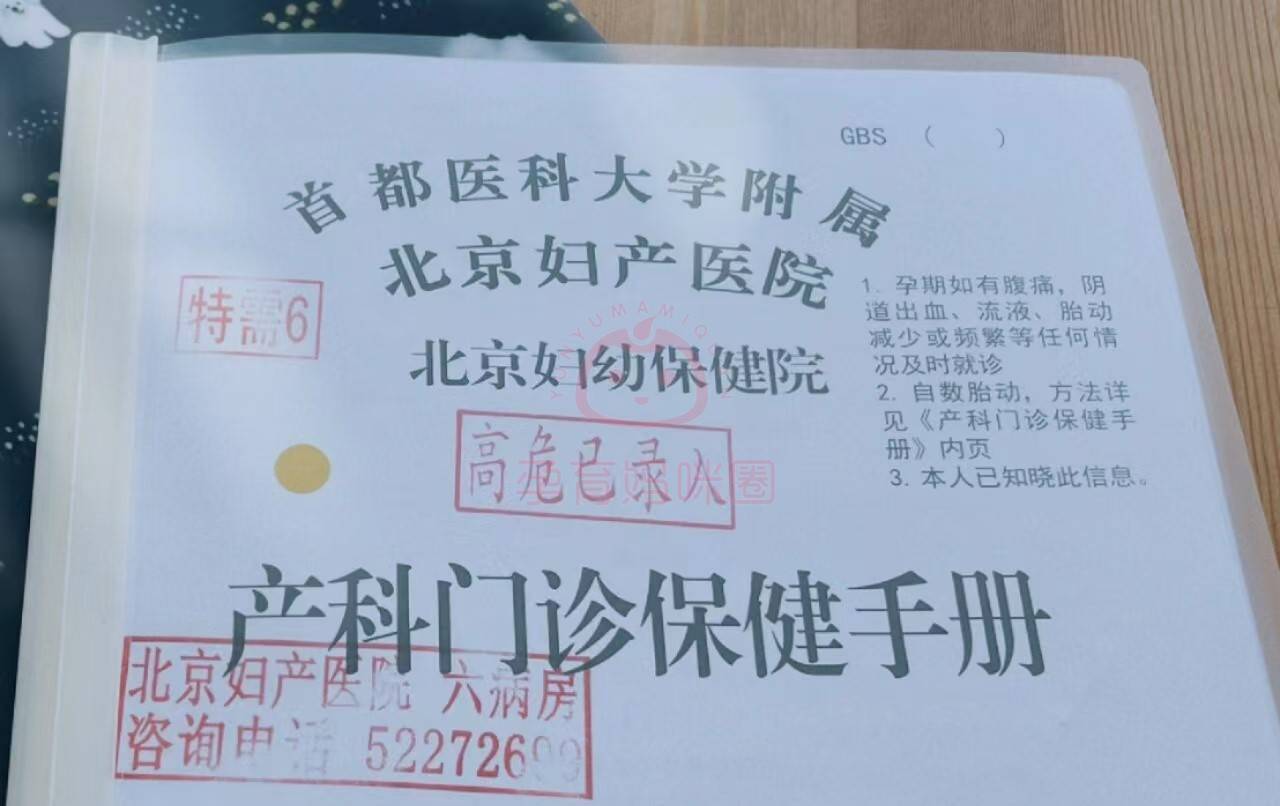 GBS （ ）
首都医科大学附属
北京妇产医院
北京妇幼保健院
特需6
1. 孕期如有腹痛，阴
道出血、流液、胎动
减少或频繁等任何情
况及时就诊
2. 自数胎动，方法详
见《产科门诊保健手
册》内页
3. 本人已知晓此信息。
YUNYUMAMIQ
高危已录入
孕育妈咪圈
产科门诊保健手册
北京妇产医院 六病房
咨询电话 52272699